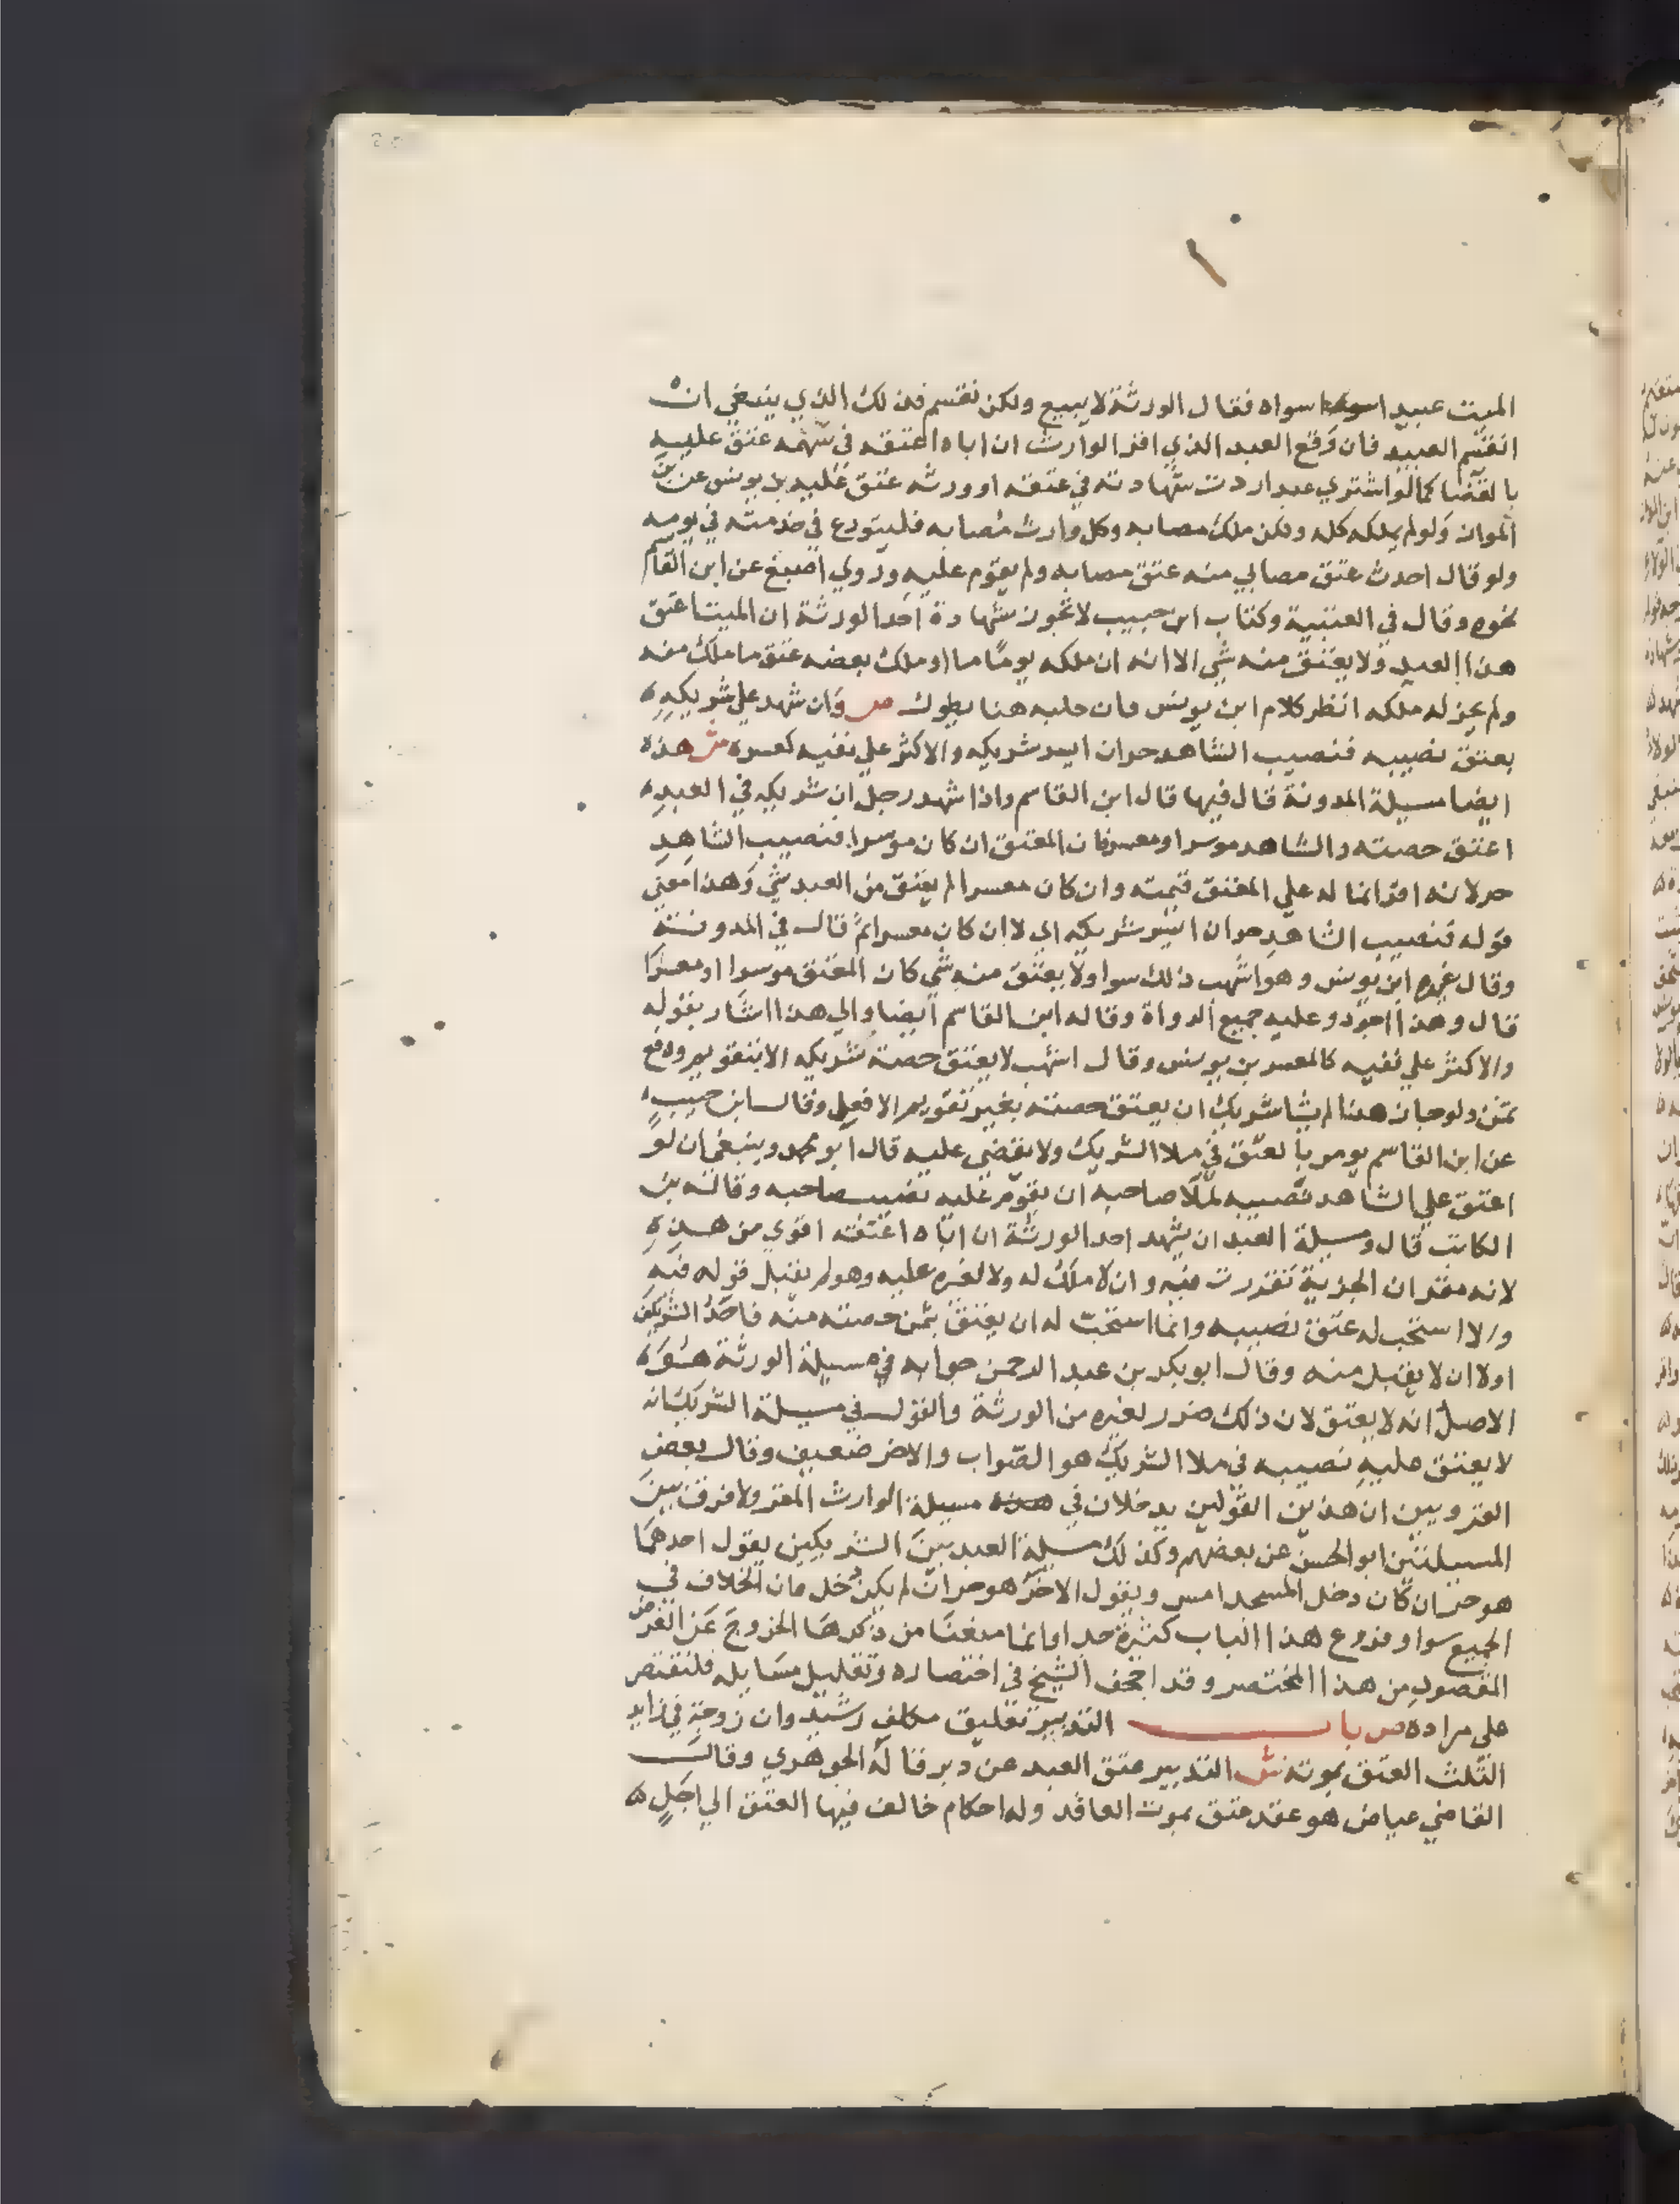 الميت عبيدا سواه فقال الورثة لا يبيع ولكن نقتسم فذلك الذي ينبغي ان
انقسم العبيد فان وقع العبد الذي اقر الوارث ان اباه اعتقه في سهمه عتق عليه
بالقضا كما لو اشتري عبدا ردت شهادته في عتقه او ورثه عتق عليه بن يونس عن بن
المواز ولو لم يملكه كله ولكن ملك مصابه وكل وارث مصابه فليتورع في خدمته في يومه
ولو قال احدث عتق مصابي منه عتق مصابه ولم يقوم عليه وروي اصبغ عن ابن القاسم
نحوه وقال في العتبية وكتاب ابن حبيب لا تجوز شهادة احد الورثة ان الميت اعتق
هذا العبد ولا يعتق منه شي الا انه ان ملكه يوما ما او ملك بعضه عتق ما ملك منه
ولم يجز له ملكه انظر كلام ابن يونس فان جلبه هنا يطول ص وان شهد علي شريكه
بعتق نصيبه فنصيب الشاهد حر ان ايسر شريكه والاكثر علي نفيه كعسره ش هذه
ايضا مسيلة المدونة قال فيها قال ابن القاسم واذا شهد رجل ان شريكه في العبد
اعتق حصته والشاهد موسر او معسر فان المعتق ان كان موسرا فنصيب الشاهد
حر لانه اقر انما له علي المعتق قيمته وان كان معسرا لم يعتق من العبد شي وهذا معني
قوله فنصيب الشاهد حر ان ايسر شريكه اي لا ان كان معسرا ثم قال في المدونة
وقال غيره ابن يونس وهو اشهب ذلك سوا ولا يعتق منه شي كان المعتق موسرا او معسرا
قال وهذا اجود وعليه جميع الرواة وقاله ابن القاسم ايضا والي هذا اشار بقوله
والاكثر علي نفيه كالمعسر بن يونس وقال اشهب لا يعتق حصة شريكه الا بتقويم ودفع
ثمن ولو جاز هذا لم يشا شريك ان يعتق حصته بغير تقويم الا فعل وقال ابن حبيب
عن ابن القاسم يومر بالعتق في ملا الشريك ولا يقضي عليه قال ابو محمد وينبغي ان لو
اعتق علي الشاهد نصيبه لملا صاحبه ان يقوم عليه نصيب صاحبه وقاله بن
الكاتب قال ومسيلة العبد ان يشهد احد الورثة ان اباه اعتقه اقوي من هذه
لانه مقر ان الحرية تقدرت فيه وان لا ملك له ولا لغيره عليه وهو لم يقبل قوله فيه
والا استحب له عتق نصيبه وانما استحب له ان يعتق بثمن حصته منه فاحد الشريكين
اولا ان لا يقبل منه وقال ابو بكر بن عبد الرحمن جوابه في مسيلة الورثة هو
الاصل انه لا يعتق لان ذلك ضرر لغيره من الورثة والقول في مسيلة الشريك انه
لا يعتق عليه نصيبه في ملا الشريك هو الصواب والاخر ضعيف وقال بعض
القرويين ان هذين القولين يدخلان في مسيلة الوارث المقر ولا فرق بين
المسيلتين ابو الحسن عن بعضهم وكذلك مسيلة العبد بين الشريكين يقول احدهما
هو حر ان كان دخل المسجد امس ويقول الاخر هو حر ان لم يكن دخل فان الخلاف في
الجميع سوا وفروع هذا الباب كثيرة جدا وانما منعنا من ذكرها الخروج عن الغرض
المقصود من هذا المختصر وقد اجحف الشيخ في اختصاره وتقليل مسايله فلنقتصر
على مراده ص باب التدبير تعليق مكلف رشيد وان زوجة في زايد
الثلث العتق بموته ش التدبير عتق العبد عن دبر قاله الجوهري وقال
القاضي عياض هو عقد عتق بموت العاقد وله احكام خالف فيها العتق الي اجل